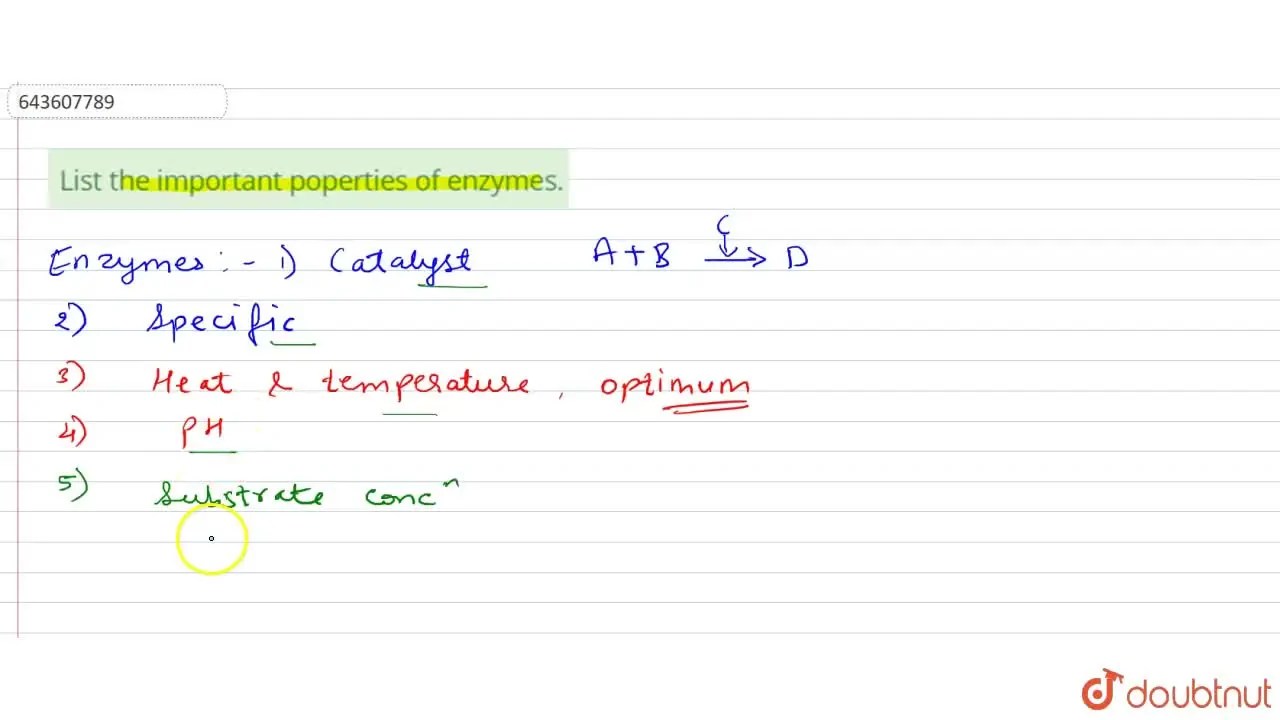 643607789
List the important poperties of enzymes.
Enzymes :- 1) Catalyst A+B C → D
2) Specific
3) Heat & temperature, optimum
4) PH
5) Substrate concⁿ
doubtnut